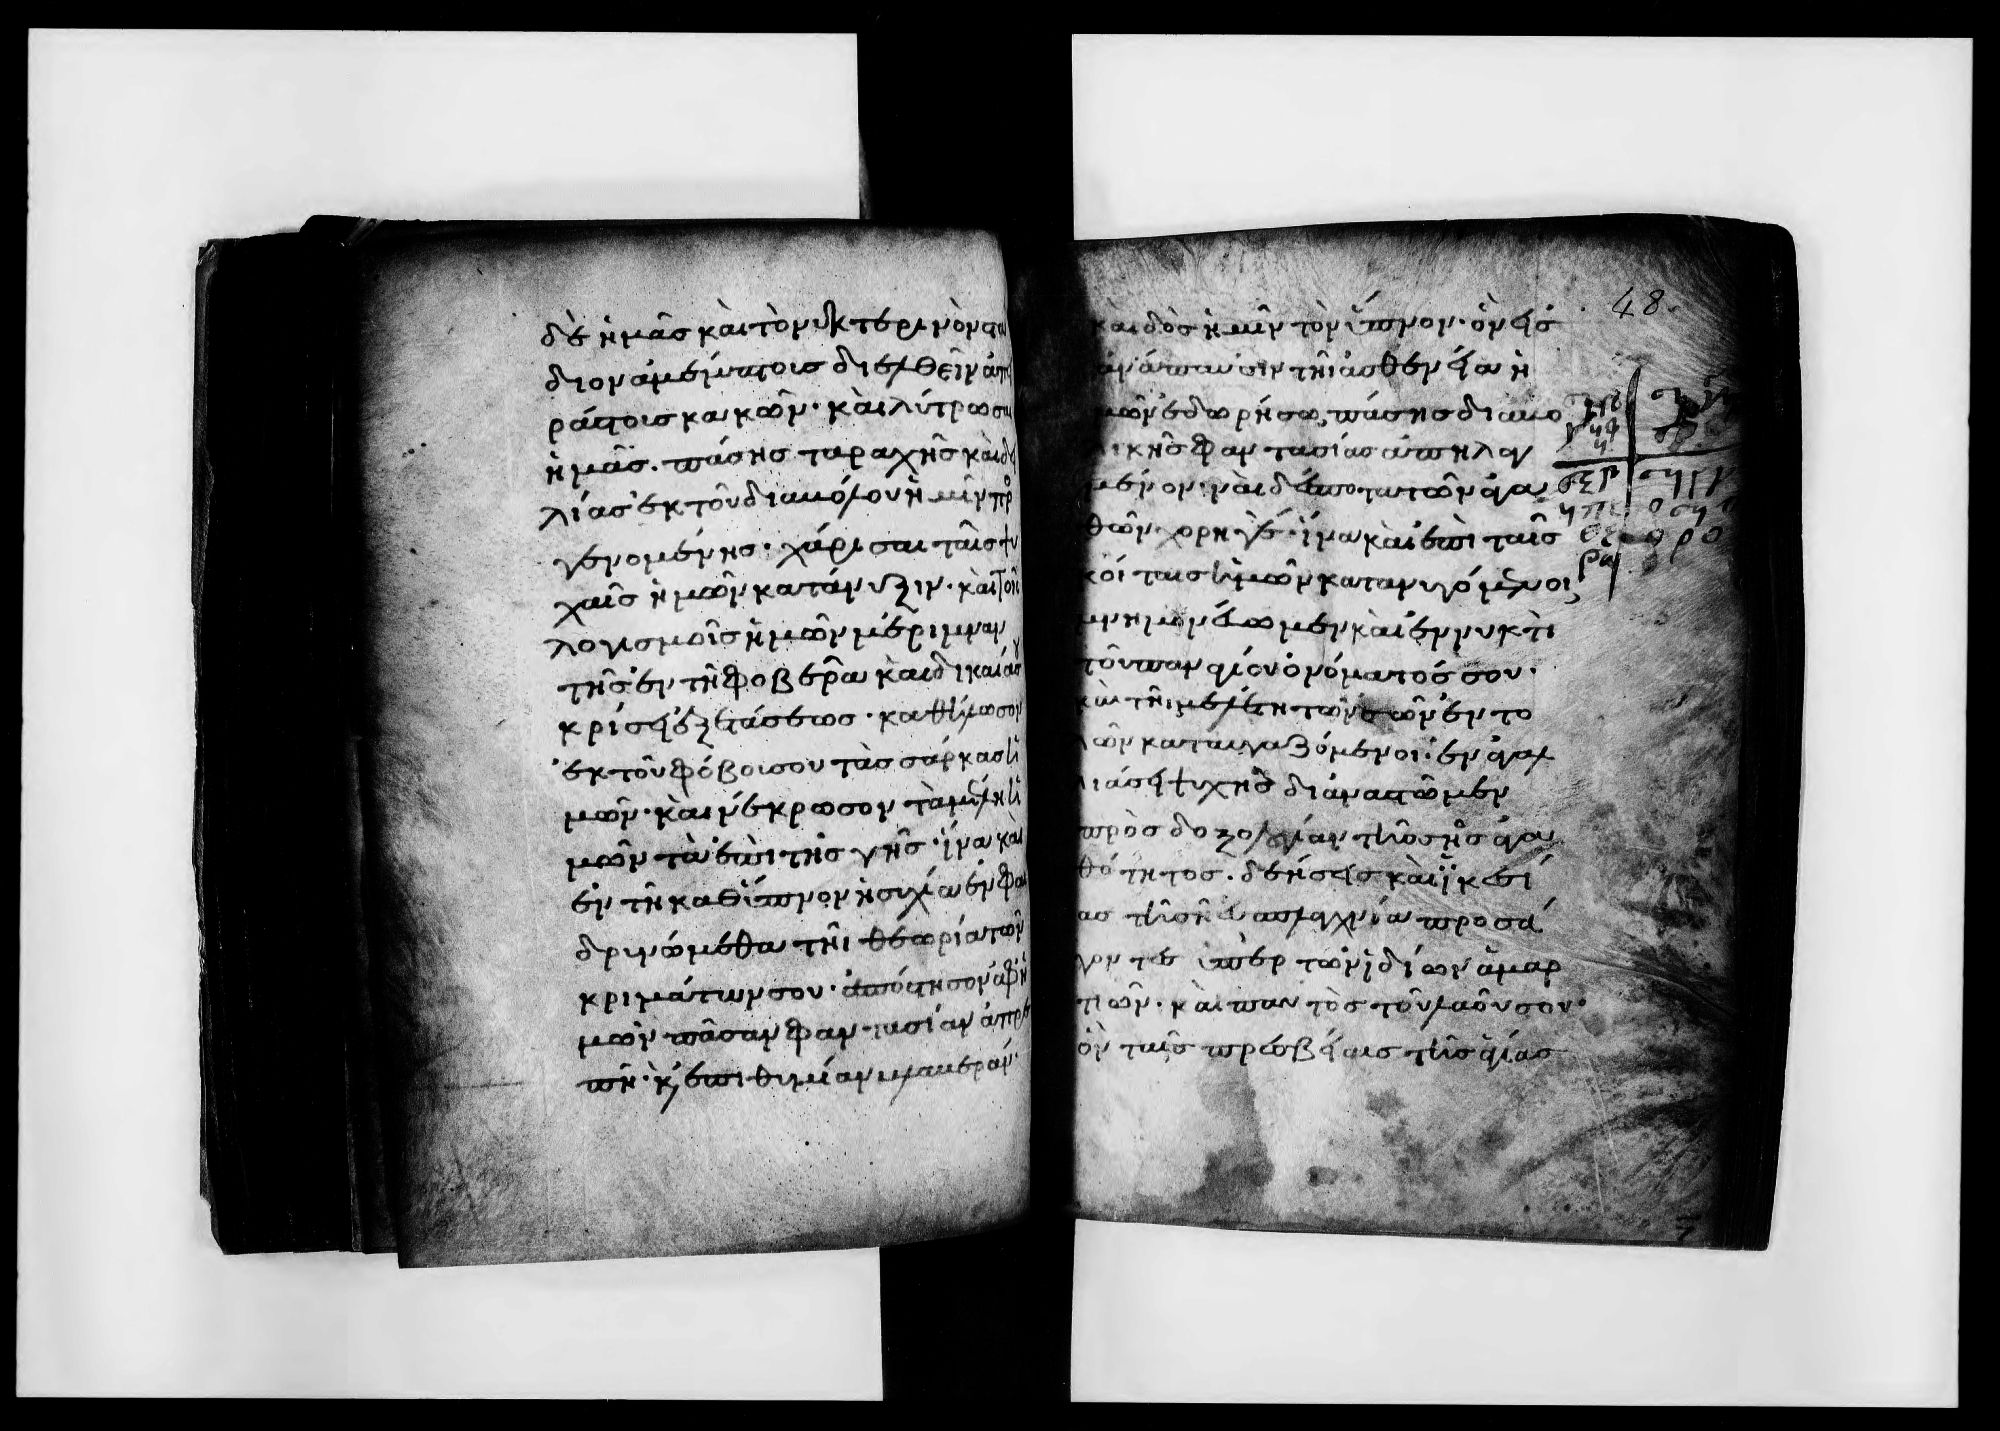 δὲ ἡμᾶς καὶ τὸ νυκτερινὸν στα
διον ἀμέμπτοις διελθεῖν ἀπει
ράστοις κακῶν· καὶ λύτρωσαι
ἡμᾶς πάσης ταραχῆς καὶ δει
λίας ἐκ τοῦ διαβόλου ἡμῖν προσ
γενομένης· χάρισαι ταῖς ψυ
χαῖς ἡμῶν κατάνυξιν· καὶ τοῖς
λογισμοῖς ἡμῶν μέριμναν
τῆς ἐν τῇ φοβερᾷ καὶ δικαίᾳ σου
κρίσει ἐξετάσεως· καθήλωσον
ἐκ τοῦ φόβοι σου τὰς σάρκας ἡ
μῶν· καὶ νέκρωσον τὰ μέλη ἡ
μῶν τὰ ἐπὶ τῆς γῆς· ἵνα καὶ
ἐν τῇ καθύπνον ἡσυχία ἐνφαι
δρινώμεθα τῆι θεωρία τῶν
κριμάτων σου· ἀπόστησον ἀφ' ἡ
μῶν πᾶσαν φαντασίαν ἀπρε
πῆ· κ(αὶ) ἐπιθυμίαν βλαβεράν·
48
καὶ δὸς ἡμῖν τὸν ὕπνον· ὃν εἰς
ἀνάπαυσιν τῆι ἀσθενεία ἡ
μῶν ἐδωρήσω, πάσης διαβο
λικῆς φαντασίας ἀπηλαγ
μένον· ναὶ δέσποτα τῶν ἀγα
θῶν χορηγέ· ἵνα καὶ ἐπὶ ταῖς
κοίταις ἡμῶν κατανυγόμενοι,
μνημονεύωμεν καὶ ἐν νυκτὶ
τοῦ παναγίου ὀνόματός σου·
καὶ τῆι μελέτη τῶν σῶν ἐντο
λῶν καταυγαζόμενοι· ἐν ἀγαλ
λιάσει ψυχῆς διαναστῶμεν
πρὸς δοξολογίαν τῆς σῆς ἀγα
θότητος· δεήσεις καὶ ἱκεσί
ας τῆ σῆ εὐσπλαγχνία προσά
γοντες ὑπὲρ τῶν ἰδίων ἁμαρ
τιῶν· καὶ παντὸς τοῦ λαοῦ σου·
ὃν ταῖς πρέσβείαις τῆς ἁγίας